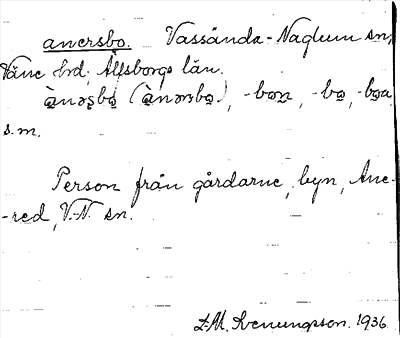 anersbo. Vassända-Naglum sn,
Väne hd, Älfsborgs län.
ànəʂbo̤ (ànəʂbo̤), -bo̤n, -bo̤, -bo̤a
s.m.
Person från gårdarne, byn, Ane-
-red, V.-N. sn.
L.M. Svenungsson. 1936.